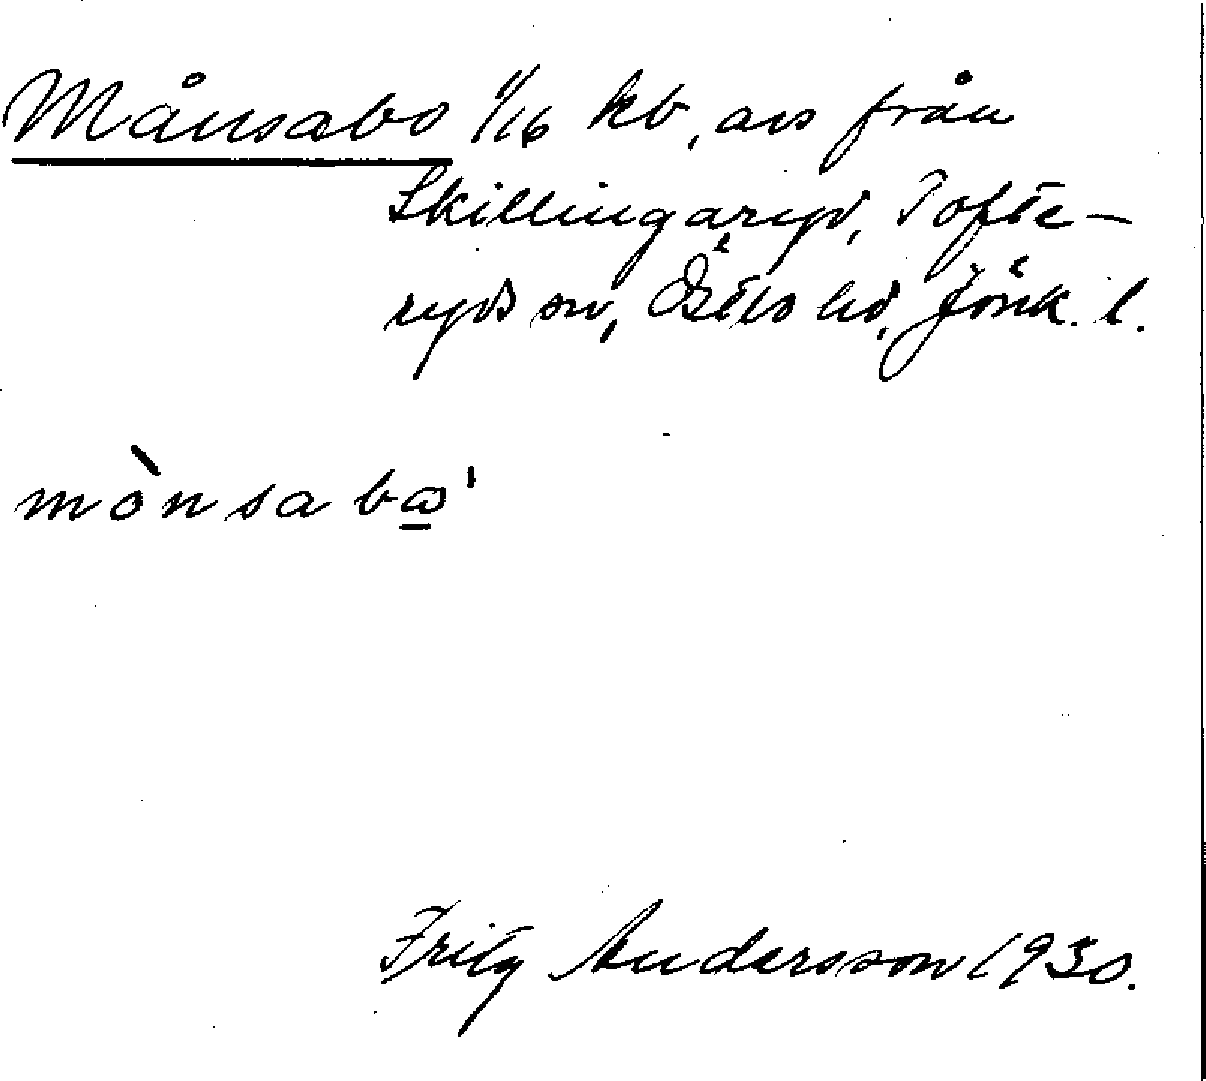 Månsabo 1/16 kb, avs från
Skillingaryd, Tofte-
ryds sn, Östbo hd, Jönk. l.
mònsabω̱'
Fritz Andersson 1930.